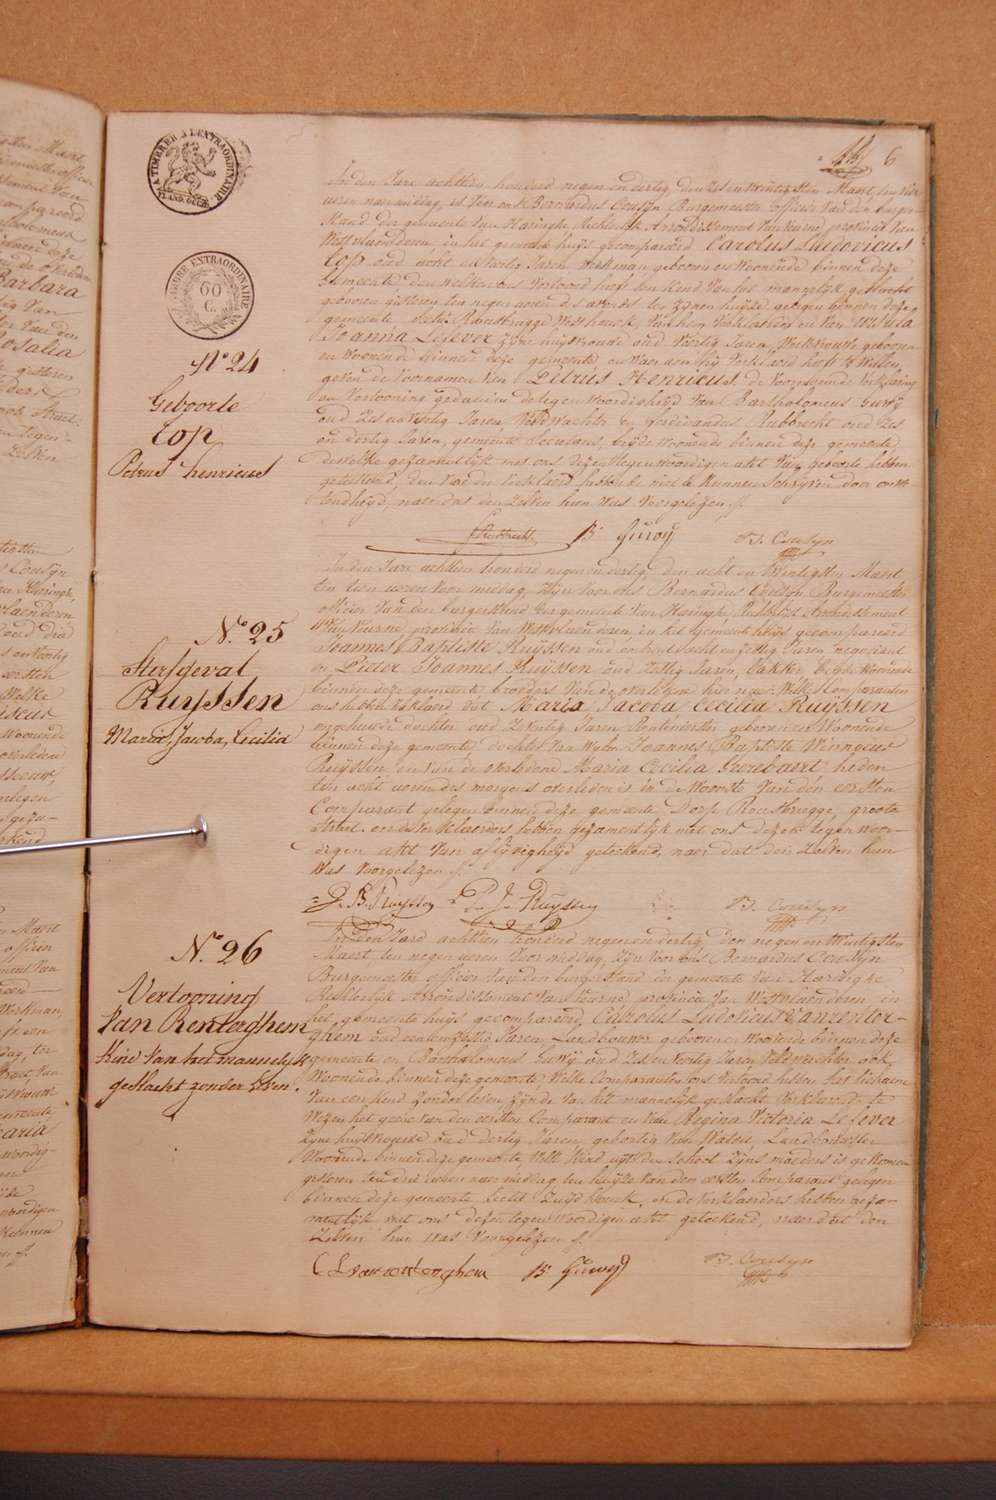 A TIMBRER A L'EXTRAORDINAIRE
VLAND. OCCID.
TIMBRE EXTRAORDINAIRE
60
C.
6
N.o 24
Geboorte
Cop
Petrus henricus
In den Jare achttien honderd negen en dertig, den zes en twintigsten Maart, ten vier
uren naermiddag, is voor ons Bernardus Cousyn Burgemeester officier van den burger-
Stand der gemeente van Haringhe, Rechterlijk Arrondissement van Veurne, provintie van
Westvlaenderen, in het gemeente huijs gecompareerd Carolus Ludovicus
Cop oud acht en veertig Jaren, Werkman geboren en Woonende binnen deze
Gemeente, den welken ons Vertoond heeft een kind van het mannelijk geslacht
geboren gisteren ten negen uren des avonds ten zijnen huijse gelegen binnen deze
gemeente Sectie Rousbrugge Westhouck, van hem Verklaerder en van Ursula
Joanna Lefever zijne huijsvrouwe oud veertig Jaren, Werkvrouw geboren
en Woonende binnen deze gemeente, en waer aen hij Verklaerd heeft te willen
geven de Voornamen van Petrus Henricus. de Voornoemde Verklaring
en Vertooning gedaen in de tegenwoordigheyd van Bartholomeus Guwij
oud zes en veertig Jaren, Veldwachter en Ferdinandus Rubbrecht oud zes
en dertig Jaren, gemeente Secretaris, beijde Woonende binnen deze gemeente
dewelke gezamentlijk met ons dezen tegenwoordigen akt van geboorte hebben
geteekend, den vader Verklaerd hebbende niet te kunnen Schrijven door onwe-
tendheijd, naer dat den zelven hun Was Voorgelezen ./.
F Rubbrecht B. Guwij B. Cousyn
N.o 25
Sterfgeval
Ruyssen
Maria, Jacoba, Cecilia
In den Jare achttien honderd negen en dertig, den acht en twintigsten Maert
ten tien uren voor middag, zijn voor ons Bernardus Cousyn Burgemeester
officier van den burgerstand der gemeente van Haringhe, Rechterlijk Arrondissement
van Veurne, provincie van Westvlaenderen, in het gemeente huijs gecompareerd
Joannes Baptiste Ruyssen oud en Zestig Jaren, negociant
en Pieter Joannes Ruyssen oud Zestig Jaren, bakker beijde Woonende
binnen deze gemeente broeders van de overledene hier naer: Welke Comparanten
ons hebben verklaerd dat Maria Jacoba Cecilia Ruyssen
ongehuwde dochter oud Zeventig Jaren Rentenierster geboren en Woonende
binnen deze gemeente, dochter van wylen Joannes Baptiste Winnocus
Ruyssen en van de overledene Maria Cecilia heden
ten acht uren des morgens overleden is in de Woonste van den eersten
Comparant gelegen binnen deze gemeente Dorp Rousbrugge, groote
Straet. en de Verklaerders hebben gezamentlijk met ons dezen tegenwoor-
digen akt van aflijvigheijd geteekend, naer dat den zelven hun
Was voorgelezen ./.
J. B. Ruyssen P. J. Ruyssen B. Cousyn
N.o 26
Vertooning
Van Renterghem
Kind van het mannelijk
geslacht zonder Leven.
In den Jare achttien honderd negen en dertig, den negen en twintigsten
Maert, ten negen uren Voor middag, zijn voor ons Bernardus Cousyn
Burgemeester officier van den burgerstand der gemeente van Haringhe
Rechterlijk Arrondissement van Veurne provincie van Westvlaenderen, in
het gemeente huijs gecompareerd, Carolus Ludovicus Vanrenter-
ghem oud een en zestig Jaren, Landbouwer geboren en Woonende binnen deze
gemeente en Bartholomeus Guwij oud zes en veertig Jaren Veldwachter ook
Woonende binnen deze gemeente Welke Comparanten ons Vertoond hebben het lichaem
van een kind zonder leven zijnde van het mannelijk geslacht Verklarende te
Wezen het gene van den eersten Comparant en van Regina Victoria Lefever
zijne huijsvrouwe oud dertig Jaren, geboortig van Watou, Landbouwster
Woonende binnen deze gemeente, Welk kind uijt den schoot zijns moeders is gekomen
gisteren ten drie uren naer middag ten huijze van den eersten Comparant gelegen
binnen deze gemeente Sectie Zuydhouck, en de Verklaerders hebben geza-
mentlijk met ons dezen tegenwoordigen akt geteekend, naer dat den
Zelven hun was Voorgelezen ./.
C L vanrenterghem B. Guwij B. Cousyn